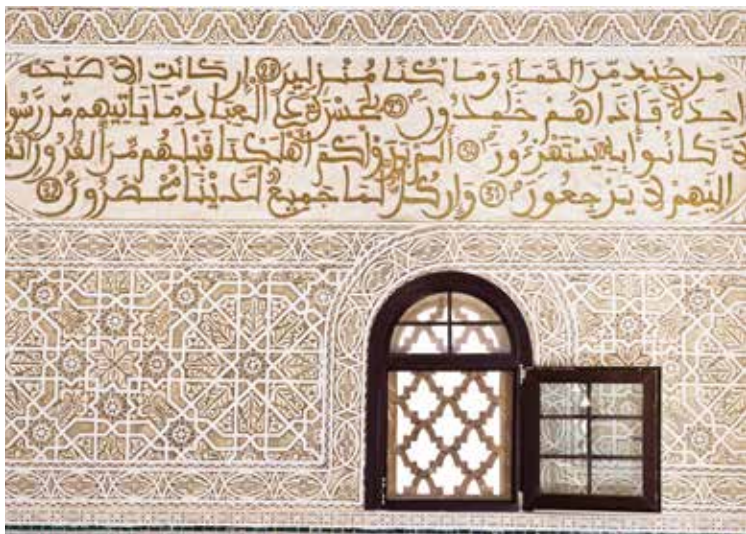 من جند مّن السَّمَاءِ وَمَا كُنَّا مُنزِلِينَ ٢٨ إن كَانَت إلاَّ صَيْحَة
احدَة فَإِذَا هُمْ خَامِدُونَ ٢٩ يَحَسْرَة عَلَى العِبَادِ مَا يَاتِيهِم مّن رَّسُو
لاَّ كَانُوا بِهِ يَسْتَهْزِءُونَ ٣٠ أَلَمْ يَرَوْا كَمْ أَهْلَكْنَا قَبْلَهُم مِّنَ القُرُونِ أَنَّه
إلَيْهِمْ لاَ يَرْجِعُونَ ٣١ وَإن كُلٌّ لَّمَا جَمِيعٌ لَّدَيْنَا مُحْضَرُونَ ٣٢